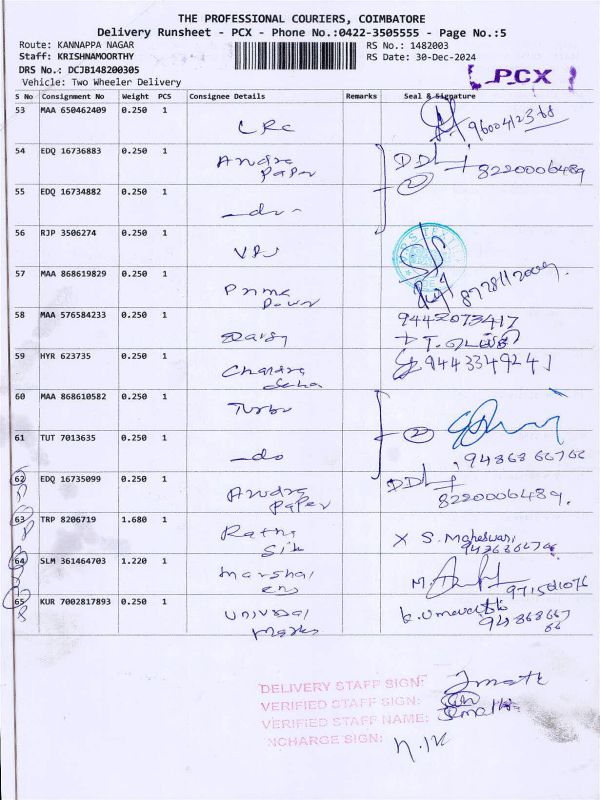 THE PROFESSIONAL COURIERS, COIMBATORE
Delivery Runsheet - PCX - Phone No.:0422-3505555 - Page No.:5
Route: KANNAPPA NAGAR RS No.: 1482003
Staff: KRISHNAMOORTHY RS Date: 30-Dec-2024
DRS No.: DCJB148200305
Vehicle: Two Wheeler Delivery
PCX
S No Consignment No Weight PCS Consignee Details Remarks Seal & Signature
53 MAA 650462409 0.250 1
LRC
54 EDQ 16736883 0.250 1
Andra DDL
Paper 2 8220006489
55 EDQ 16734882 0.250 1
-do-
56 RJP 3506274 0.250 1
57 MAA 868619829 0.250 1
Prime
Power
58 MAA 576584233 0.250 1 9442073417
59 HYR 623735 0.250 1 9443349241
Chandra
60 MAA 868610582 0.250 1
Turbo 2
61 TUT 7013635 0.250 1
-do
62 EDQ 16735099 0.250 1 DDL
Andra 8220006489.
Paper
63 TRP 8206719 1.680 1
Rathi X S. Maheswari
Silk
64 SLM 361464703 1.220 1
Marshal M.
65 KUR 7002817893 0.250 1
Universal
DELIVERY STAFF SIGN:
VERIFIED STAFF SIGN:
VERIFIED STAFF NAME:
NCHARGE SIGN: